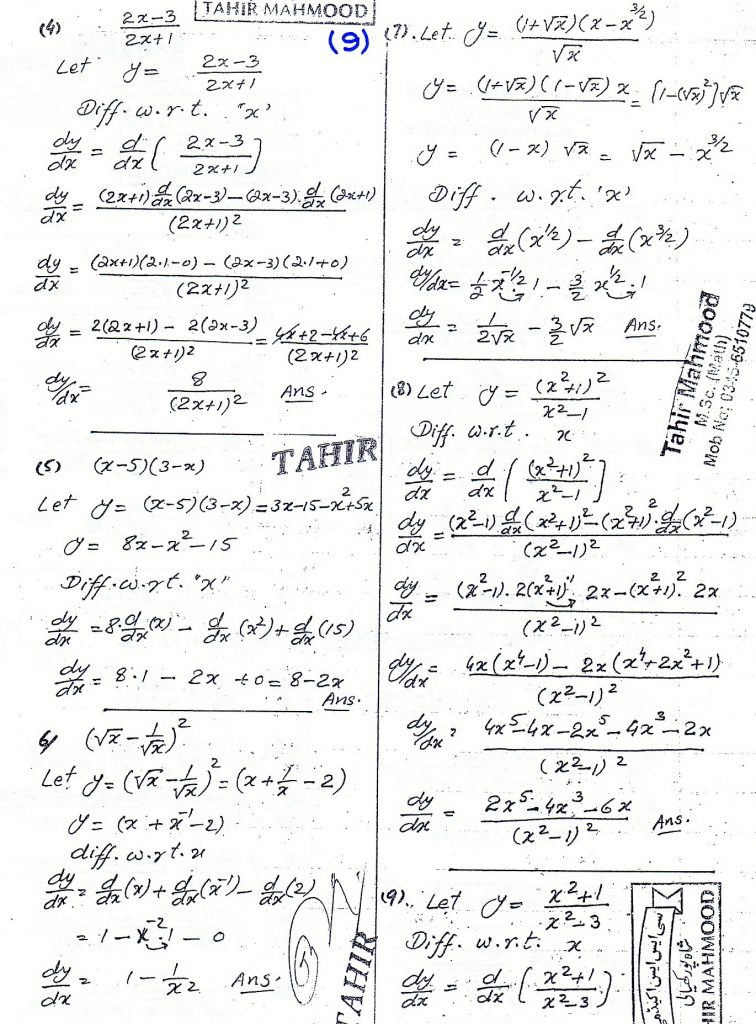 TAHIR MAHMOOD
(9)
(4) (2x-3)/(2x+1)
Let y = (2x-3)/(2x+1)
Diff. w.r.t. "x"
dy/dx = d/dx [(2x-3)/(2x+1)]
dy/dx = ((2x+1) d/dx (2x-3) - (2x-3). d/dx (2x+1))/(2x+1)²
dy/dx = ((2x+1)(2.1-0) - (2x-3)(2.1+0))/(2x+1)²
dy/dx = (2(2x+1) - 2(2x-3))/(2x+1)² = (4x+2-4x+6)/(2x+1)²
dy/dx = 8/(2x+1)² Ans.
TAHIR
(5) (x-5)(3-x)
Let y = (x-5)(3-x) = 3x-15-x²+5x
y = 8x-x²-15
Diff. w.r.t. "x"
dy/dx = 8.d/dx (x) - d/dx (x²) + d/dx (15)
dy/dx = 8.1 - 2x + 0 = 8-2x
Ans.
6/ (√x - 1/√x)²
Let y = (√x - 1/√x)² = (x + 1/x - 2)
y = (x + x⁻¹ - 2)
diff. w.r.t. x
dy/dx = d/dx (x) + d/dx (x⁻¹) - d/dx (2)
= 1 - x⁻².1 - 0
dy/dx = 1 - 1/x² Ans.
TAHIR
(7). Let y = (1+√x)(x-x^3/2)/√x
y = (1+√x)(1-√x) x/√x = [1-(√x)²]√x
y = (1-x) √x = √x - x^3/2
Diff. w.r.t. 'x'
dy/dx = d/dx (x^1/2) - d/dx (x^3/2)
dy/dx = 1/2 x^-1/2 . 1 - 3/2 x^1/2 . 1
dy/dx = 1/(2√x) - 3/2 √x Ans.
Tahir Mahmood
M.Sc. (Math)
Mob No: 0345-6510779
(8) Let y = (x²+1)²/(x²-1)
Diff. w.r.t. x
dy/dx = d/dx [(x²+1)²/(x²-1)]
dy/dx = ((x²-1) d/dx (x²+1)² - (x²+1)² . d/dx (x²-1))/(x²-1)²
dy/dx = ((x²-1). 2(x²+1)¹ . 2x - (x²+1)² . 2x)/(x²-1)²
dy/dx = (4x(x⁴-1) - 2x(x⁴+2x²+1))/(x²-1)²
dy/dx = (4x⁵-4x-2x⁵-4x³-2x)/(x²-1)²
dy/dx = (2x⁵-4x³-6x)/(x²-1)² Ans.
(9). Let y = (x²+1)/(x²-3)
Diff. w.r.t. x
dy/dx = d/dx ((x²+1)/(x²-3))
HIR MAHMOOD